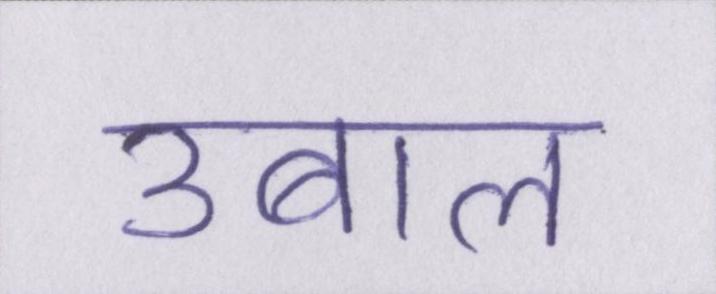 उबाल